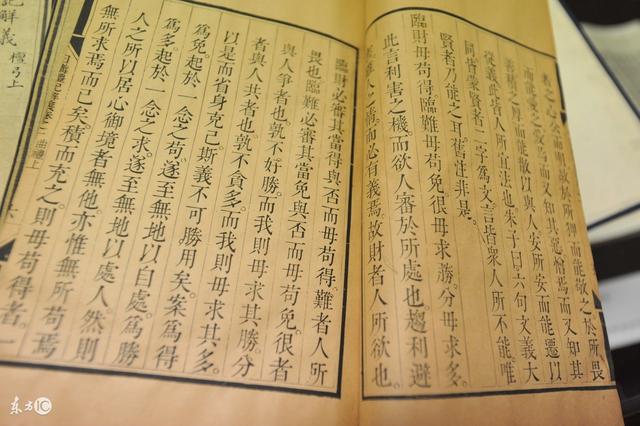 而能愛之於愛焉而又知其惡憎焉而又知其
善積焉而能散以與人安所安而能遷以
從義此皆人所宜法也朱子曰六句文義大
同皆蒙賢者二字為文言皆衆人所不能唯
賢者乃能之耳舊注非是。
臨財毋苟得。臨難毋苟免。很毋求勝。分毋求多。
此言利害之機。而欲人審於所處也。趨利避
人情而必有義焉。故財者人所欲也。
臨財必審其當得與否而毋苟得。難者人所
畏也。臨難必審其當免與否而毋苟免。很者
與人爭者也。孰不好勝。而我則毋求其勝。分
者與人共者也。孰不貪多。而我則毋求其多。
以是而省身克己。斯義不可勝用矣。案為得
為免。起於一念之苟。遂至無地以自處。為勝
為多。起於一念之求。遂至無地以處人。然則
人之所以居心御境者無他。亦惟無所苟焉
無所求焉而已矣。積而充之。則毋苟得者。一
曲禮上
記解義 檀弓上
东方IC